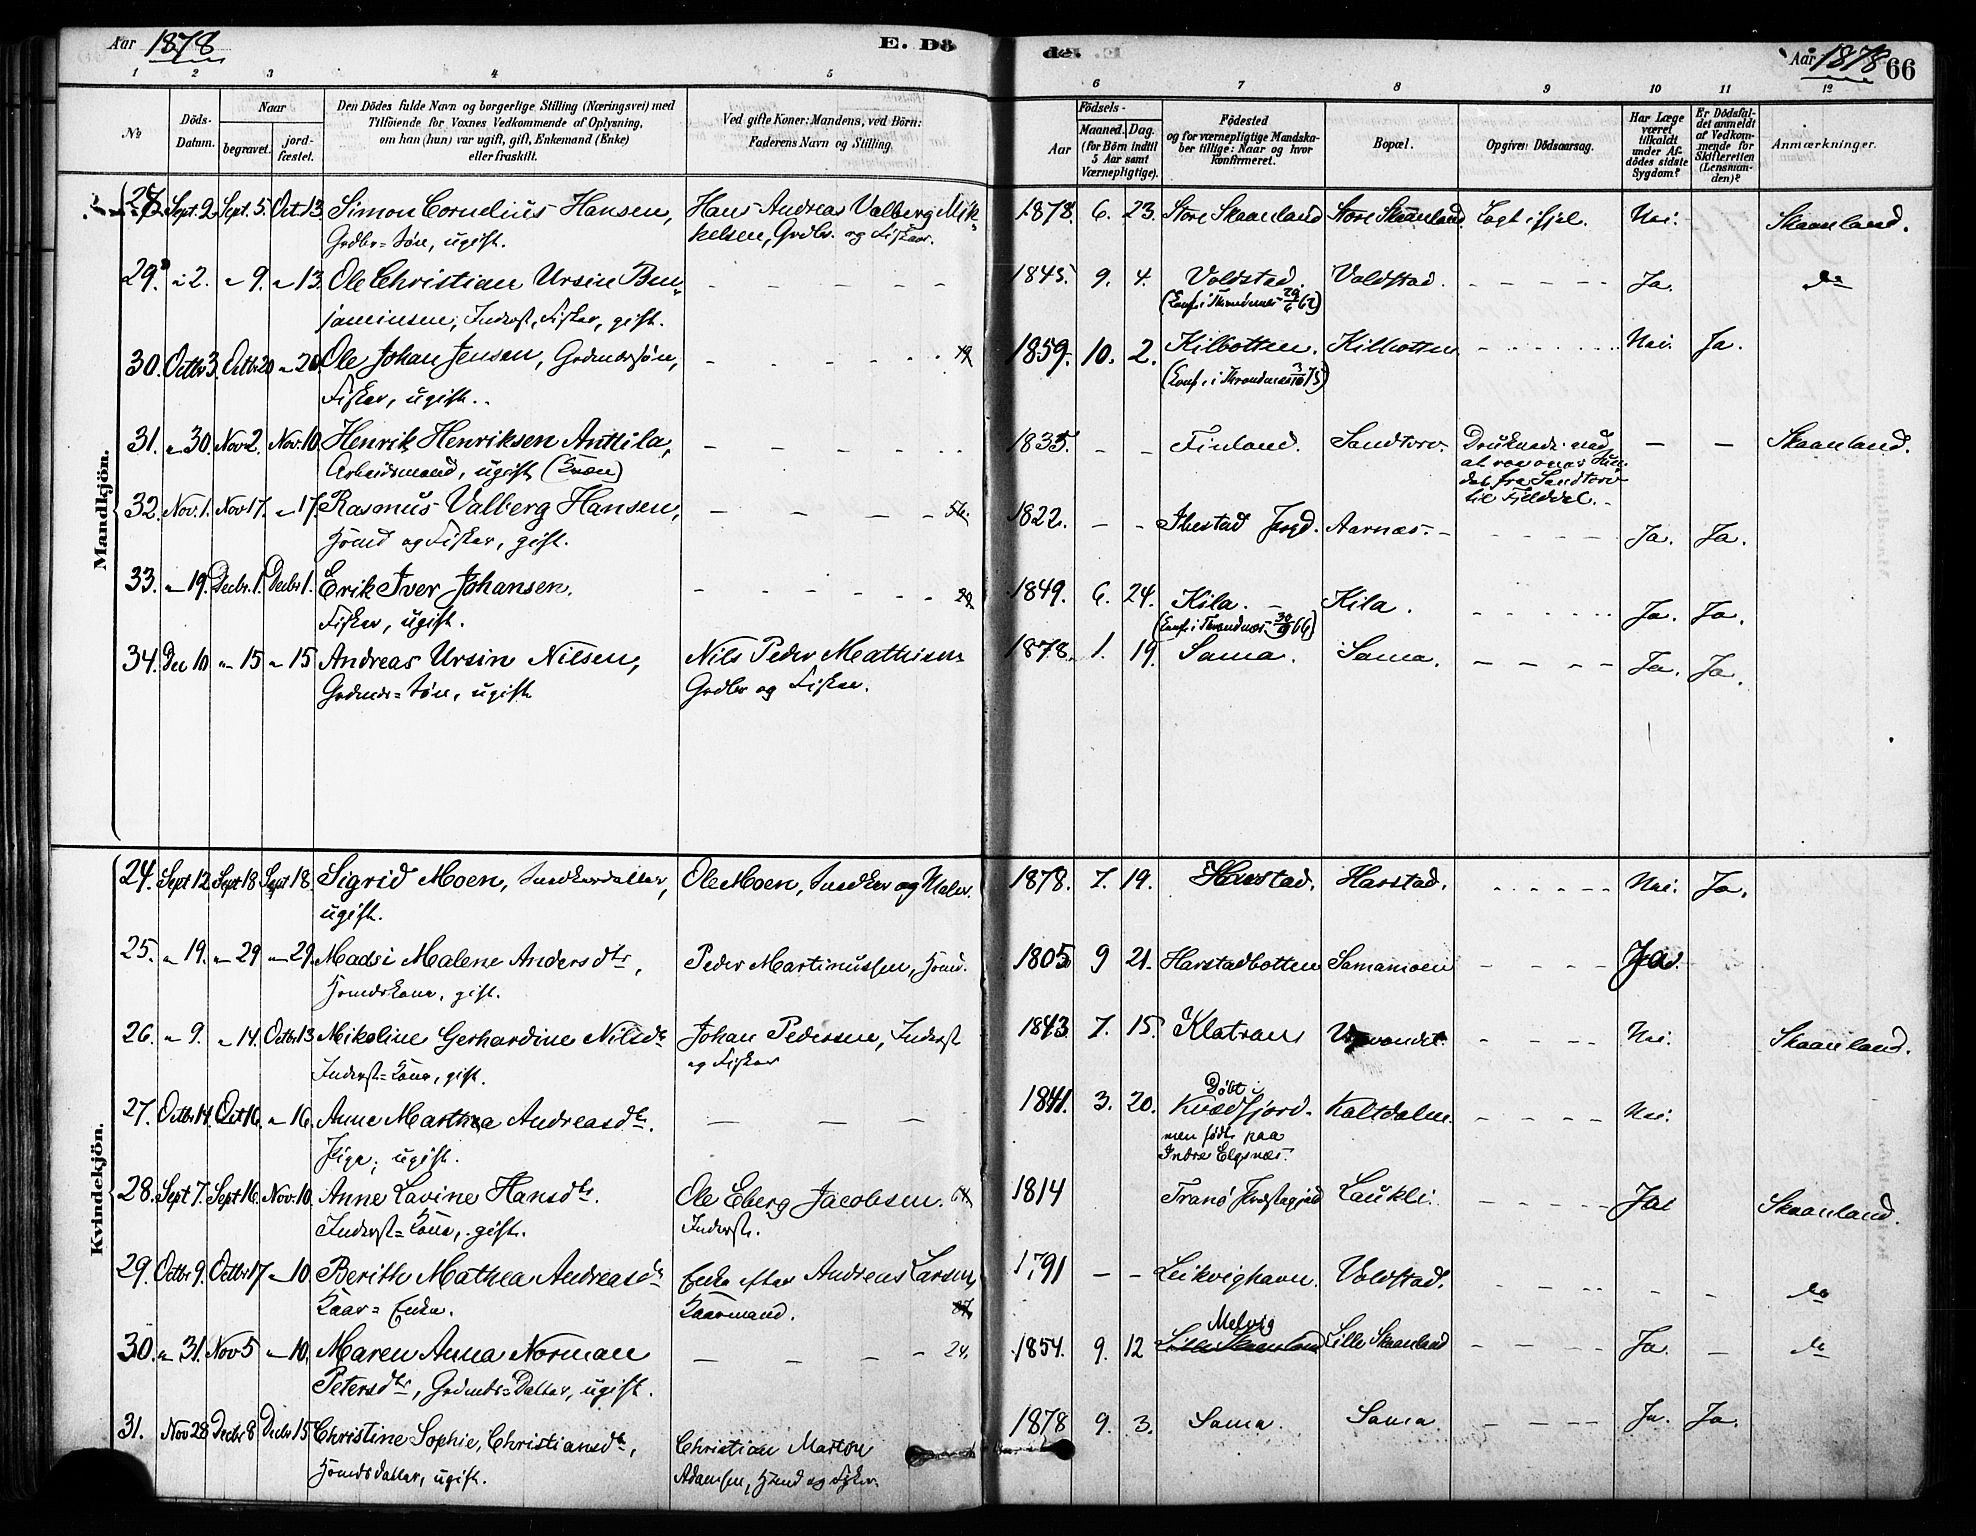 Aar 1878 E. Dö
de. Aar 1878 66
1 2 3 4 5 6 7 8 9 10 11 12
No
Döds-Datum.
Naar
begravet.
jord-fæstet.
Den Dödes fulde Navn og borgerlige Stilling (Næringsvei) med
Tilföiende for Voxnes Vedkommende af Oplysning,
om han (hun) var ugift, gift, Enkemand (Enke)
eller fraskilt.
Ved gifte Koner: Mandens, ved Börn:
Faderens Navn og Stilling.
Födsels-
Aar
Maaned. Dag.
(for Börn indtil
5 Aar samt
Værnepligtige).
Födested
og for værnepligtige Mandska-
ber tillige: Naar og hvor
konfirmeret.
Bopæl.
Opgiven Dödsaarsag.
Har Læge
været
tilkaldt
under Af-
dödes sidste
Sygdom?
Er Dödsfal-
det anmeldt
af Vedkom-
mende for
Skifteretten
(Lensman-
den)?
Anmærkninger.
Mandkjön.
28. Sept. 2. Sept. 5. Oct. 13. Simon Cornelius Hansen, Hans Andreas Valberg Mik- 1878. 6. 23. Store Skaanland Store Skaanland Lagt ihjel. Nei. Skaanland.
Grdbr=Søn, ugift. kelsen, Grdbr. og Fisker.
29. " 2. " 9. " 13. Ole Christian Ursin Ben- 1845. 9. 4. Voldstad. Voldstad. Ja. do
jaminsen, Inderst, Fisker, gift. (Conf. i Throndenæs 29/6 62)
30. Octbr 3. Octbr 20 " 20. Ole Johan Jensen, Grdmdssøn, 19. 1859. 10. 2. Kilbotten. Kilbotten Nei. Ja.
Fisker, ugift. (Conf. i Throndenæs 3/10 75)
31. " 30. Nov. 2. Nov. 10. Henrik Henriksen Anttila, 1835. Finland. Sandtorv. Druknede ved Skaanland.
Arbeidsmand, ugift (Kvæn) at roe over Sun-
det fra Sandtorv
til Fjelddal.
32. Nov. 1. Nov 17. " 17. Rasmus Valberg Hansen, 56. 1822. Ibestad Prgd. Aarnæs. Ja. Ja.
Hsmd og Fisker, gift.
33. " 19. Decbr. 1. Decbr 1. Erik Iver Johansen. 29. 1849. 6. 24. Kila. Kila. Ja. Ja.
Fisker, ugift. (Conf. i Throndnæs 30/9 66)
34. Dec 10 " 15 " 15 Andreas Ursin Nilsen, Nils Peder Mathisen 1878. 1. 19. Sama. Sama. Ja. Ja.
Grdmds=Søn, ugift Grdbr og Fisker.
Kvindekjön.
24. Sept 12 Sept 18 Sept 18. Sigrid Moen, Snedkerdatter, Ole Moen, Snedker og Maler. 1878. 7. 19. Harstad. Harstad. Nei. Ja.
ugift.
25. " 19. " 29 " 29. Madsi Malene Andersdtr, Peder Martinussen, Hsmd. 1805 9 21. Harstadbotten Samamoen Ja.
Hsmdskone, gift.
26. " 9. " 14. Octbr 13 Mikoline Gerhardine Nilsdtr Johan Pedersen, Inderst 1843 7. 15. Klatran Nei. Skaanland.
Inderst=Kone, gift. og Fisker
27. Octbr 14. Oct 16. " 16. Anne Marthea Andreasdtr. 1841. 3. 20. Døbt
Kvædfjord. Kaltdalen. Nei.
Pige, ugift. men født paa
Indre Elgsnæs.
28. Sept 7. Sept 16. Nov. 10. Anne Lavine Hansdtr. Ole Eberg Jacobsen. 64. 1814 Tranø Præstegjæld Laukli. Ja Skaanland.
Inderst=Kone, gift. Inderst.
29. Octbr 9. Octbr 17 " 10. Berith Mathea Andreasdtr Enke efter Andreas Larsen, 1791 Leikvighavn. Voldstad. do
Kaar=Enke. Kaarmand. 87.
30. " 31. Nov 5 " 10. Maren Anna Norman 24. 1854. 9. 12 Melvig
Lille Skaanland Lille Skaanland Ja. do
Petersdtr, Grdmds=Datter, ugift.
31. Nov 28 Decbr 8 Decbr 15 Christine Sophie, Christiansdtr, Christian Marton 1878 9. 3. Sama. Sama Ja. Ja.
Hsmdsdatter, ugift. Adamsen, Hsmd og Fisker